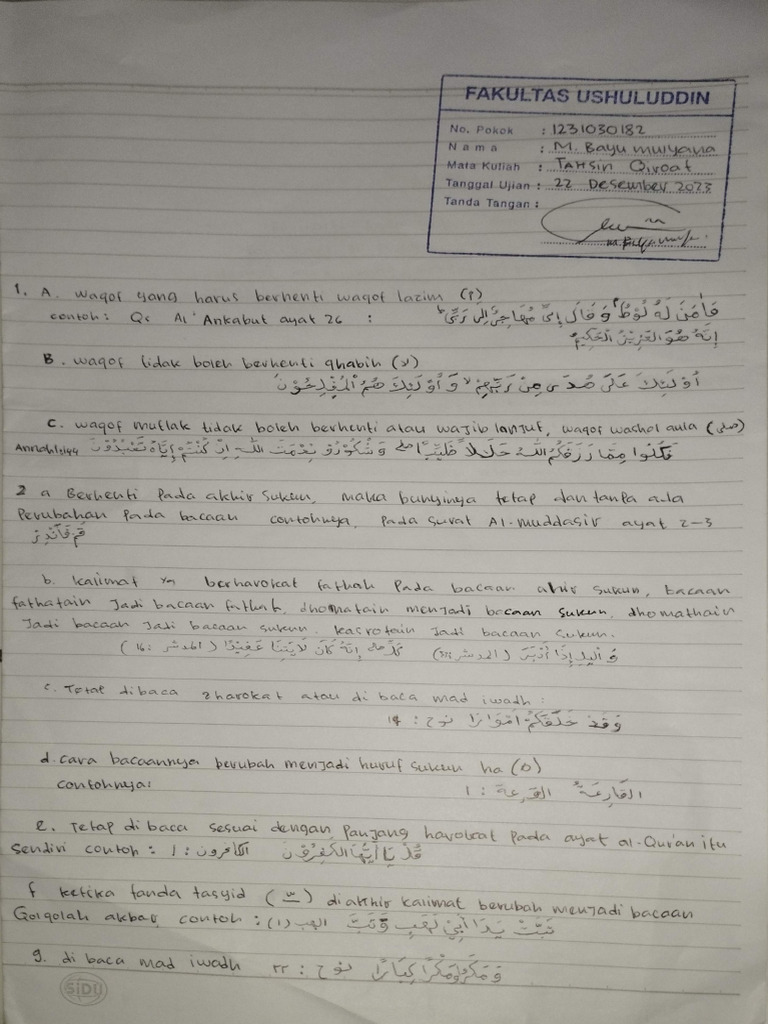 FAKULTAS USHULUDDIN
No. Pokok : 1231030182
Nama : M. Bayu mulyana
Mata Kuliah : TAHSin Qiroat
Tanggal Ujian : 22 Desember 2023
Tanda Tangan :
1. A. waqof yang harus berhenti waqof lazim (م)
contoh: Qs Al 'Ankabut ayat 26 : فَأٰمَنَ لَهُ لُوْطٌ ۘ وَقَالَ إِنِّيْ مُهَاجِرٌ إِلَى رَبِّيْ ۗ
إِنَّهُ هُوَ الْعَزِيْزُ الْحَكِيْمُ
B. waqof tidak boleh berhenti ghabih (لا)
أُوْلَئِكَ عَلَىٰ هُدًى مِنْ رَبِّهِمْ ۙ وَأُوْلَئِكَ هُمُ الْمُفْلِحُوْنَ
C. waqof mutlak tidak boleh berhenti atau wajib lanjut, waqof washol aula (صلى)
Annahl:144 فَكُلُوْا مِمَّا رَزَقَكُمُ اللّٰهُ حَلَالًا طَيِّبًا ۖ وَشْكُوْرُوْ نِعْمَتَ اللّٰهِ إِنْ كُنْتُمْ إِيَّاهُ تَعْبُدُوْنَ
2 a Berhenti Pada akhir sukun, maka bunyinya tetap dan tanpa ada
Perubahan Pada bacaan contohnya, Pada surat Al-muddasir ayat 2-3
قُمْ فَأَنْذِرْ
b. kalimat yg berharokat fathah Pada bacaan ahir sukun, bacaan
fathatain Jadi bacaan fathah, dhomatain menjadi bacaan sukun, dhomathain
Jadi bacaan Jadi bacaan sukun. kasrotain Jadi bacaan sukun.
وَالَّيْلِ إِذْ أَدْبَرَ (المدشر:33) كَلَّا ۖ إِنَّهُ كَانَ لِأَيٰتِنَا عَنِيْدًا (المدشر:16)
c. Tetap dibaca 2harokat atau di baca mad iwadh :
وَقَدْ خَلَقَكُمْ أَطْوَارًا نوح : 14
d. cara bacaannya berubah menjadi huruf sukun ha (ه)
contohnya: الْقَارِعَةُ القرعة : 1
e. Tetap di baca sesuai dengan Panjang harokat pada ayat al-Qur'an itu
Sendiri contoh : قُلْ يَا أَيُّهَا الْكٰفِرُوْنَ الكافرون : 1
f ketika tanda tasyid ( ّ ) diakhir kalimat berubah menjadi bacaan
Qolqolah akbar contoh : تَبَّتْ يَدَا أَبِيْ لَهَبٍ وَّتَبَّ الهب (1)
g. di baca mad iwadh وَمَكَرُوْا مَكْرًا كُبَّارًا نوح : 22
SIDU